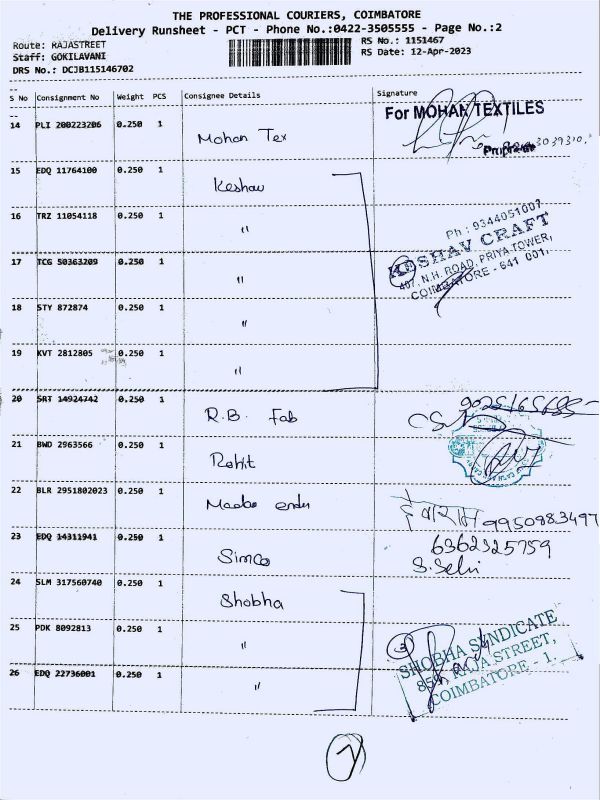 THE PROFESSIONAL COURIERS, COIMBATORE
Delivery Runsheet - PCT - Phone No.:0422-3505555 - Page No.:2
Route: RAJASTREET
RS No.: 1151467
Staff: GOKILAVANI
RS Date: 12-Apr-2023
DRS No.: DCJB115146702
S No Consignment No Weight PCS Consignee Details Signature
14 PLI 200223206 0.250 1 Mohan Tex
For MOHAN TEXTILES
15 EDQ 11764100 0.250 1 Keshav
16 TRZ 11054118 0.250 1 "
Ph : 9344051007
KESHAV CRAFT
407, N.H. ROAD, PRIYA TOWER,
COIMBATORE - 641 001.
17 TCG 50363209 0.250 1 "
18 STY 872874 0.250 1 "
19 KVT 2812805 0.250 1 "
20 SRT 14924742 0.250 1 R.B. Fab
21 BWD 2963566 0.250 1 Rohit
22 BLR 2951802023 0.250 1
9950983497
23 EDQ 14311941 0.250 1 Simco
6362325759
S.Selvi
24 SLM 317560740 0.250 1 Shobha
25 PDK 8092813 0.250 1 "
3
SHOBHA SYNDICATE
859, RAJA STREET,
COIMBATORE - 1.
26 EDQ 22736001 0.250 1 "
7